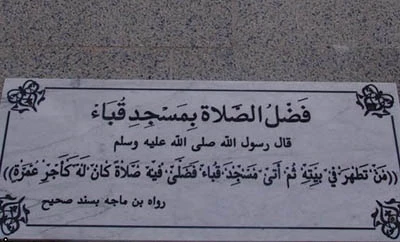 فَضْلُ الصَّلَاةِ بِمَسْجِدِ قُبَاءَ
قال رسول الله صلى الله عليه وسلم
((مَنْ تَطَهَّرَ فِي بَيْتِهِ ثُمَّ أَتَىٰ مَسْجِدَ قُبَاءَ فَصَلَّىٰ فِيْهِ صَلَاةً كَانَ لَهُ كَأَجْرِ عُمْرَةٍ))
رواه بن ماجه بسند صحيح